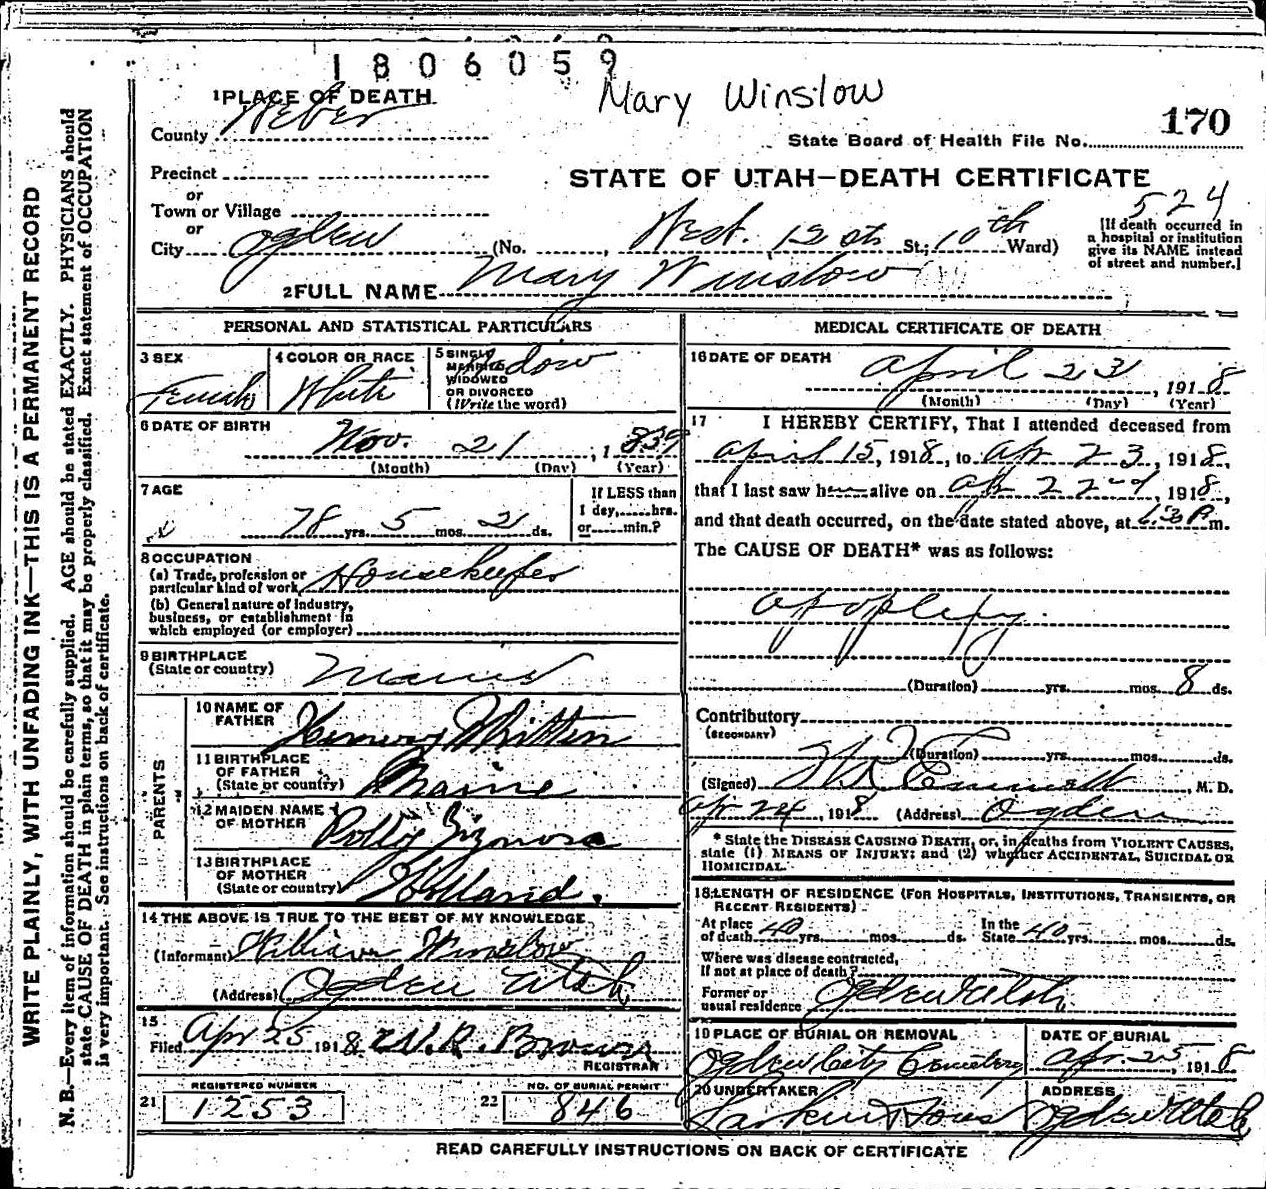 1806059
Mary Winslow
1 PLACE OF DEATH
County Weber
State Board of Health File No. 170
Precinct
or
STATE OF UTAH—DEATH CERTIFICATE
524
Town or Village
or
City Ogden (No. West. 12th St; 10th Ward)
[If death occurred in
a hospital or institution
give its NAME instead
of street and number.]
2 FULL NAME Mary Winslow
PERSONAL AND STATISTICAL PARTICULARS
3 SEX
Female
4 COLOR OR RACE
White
5 SINGLE
MARRIED
WIDOWED
OR DIVORCED
(Write the word)
Widow
6 DATE OF BIRTH
Nov. 21, 1839
(Month) (Day) (Year)
7 AGE
78 yrs. 5 mos. 2 ds.
If LESS than
1 day,.....hrs.
or......min.?
8 OCCUPATION
(a) Trade, profession or
particular kind of work Housekeeper
(b) General nature of industry,
business, or establishment in
which employed (or employer)
9 BIRTHPLACE
(State or country)
PARENTS
10 NAME OF
FATHER
Whitten
11 BIRTHPLACE
OF FATHER
(State or country) Maine
12 MAIDEN NAME
OF MOTHER Polly
13 BIRTHPLACE
OF MOTHER
(State or country) Holland.
14 THE ABOVE IS TRUE TO THE BEST OF MY KNOWLEDGE
(Informant) William Winslow
(Address) Ogden Utah
15
Filed Apr 25 1918 W.R. Brown
REGISTRAR
REGISTERED NUMBER
21 1253
NO. OF BURIAL PERMIT
22 846
MEDICAL CERTIFICATE OF DEATH
16 DATE OF DEATH
April 23, 1918
(Month) (Day) (Year)
17 I HEREBY CERTIFY, That I attended deceased from
April 15, 1918, to Apr 23, 1918,
that I last saw her alive on Apr 22nd, 1918,
and that death occurred, on the date stated above, at P m.
The CAUSE OF DEATH* was as follows:
apoplexy.
(Duration) yrs. mos. 8 ds.
Contributory
(SECONDARY)
(Duration) yrs. mos. ds.
(Signed) M. D.
Apr 24, 1918 (Address) Ogden
* State the DISEASE CAUSING DEATH, or, in deaths from VIOLENT CAUSES,
state (1) MEANS OF INJURY; and (2) whether ACCIDENTAL, SUICIDAL OR
HOMICIDAL.
18 LENGTH OF RESIDENCE (FOR HOSPITALS, INSTITUTIONS, TRANSIENTS, OR
RECENT RESIDENTS)
At place
of death 40 yrs. mos. ds. In the
State 40 yrs. mos. ds.
Where was disease contracted,
if not at place of death?
Former or
usual residence Ogden Utah
19 PLACE OF BURIAL OR REMOVAL
Ogden City Cemetery
DATE OF BURIAL
Apr. 25, 1918
20 UNDERTAKER
Larkin & Sons
ADDRESS
Ogden Utah
READ CAREFULLY INSTRUCTIONS ON BACK OF CERTIFICATE
WRITE PLAINLY, WITH UNFADING INK—THIS IS A PERMANENT RECORD
N. B.—Every item of information should be carefully supplied. AGE should be stated EXACTLY. PHYSICIANS should
state CAUSE OF DEATH in plain terms, so that it may be properly classified. Exact statement of OCCUPATION
is very important. See instructions on back of certificate.